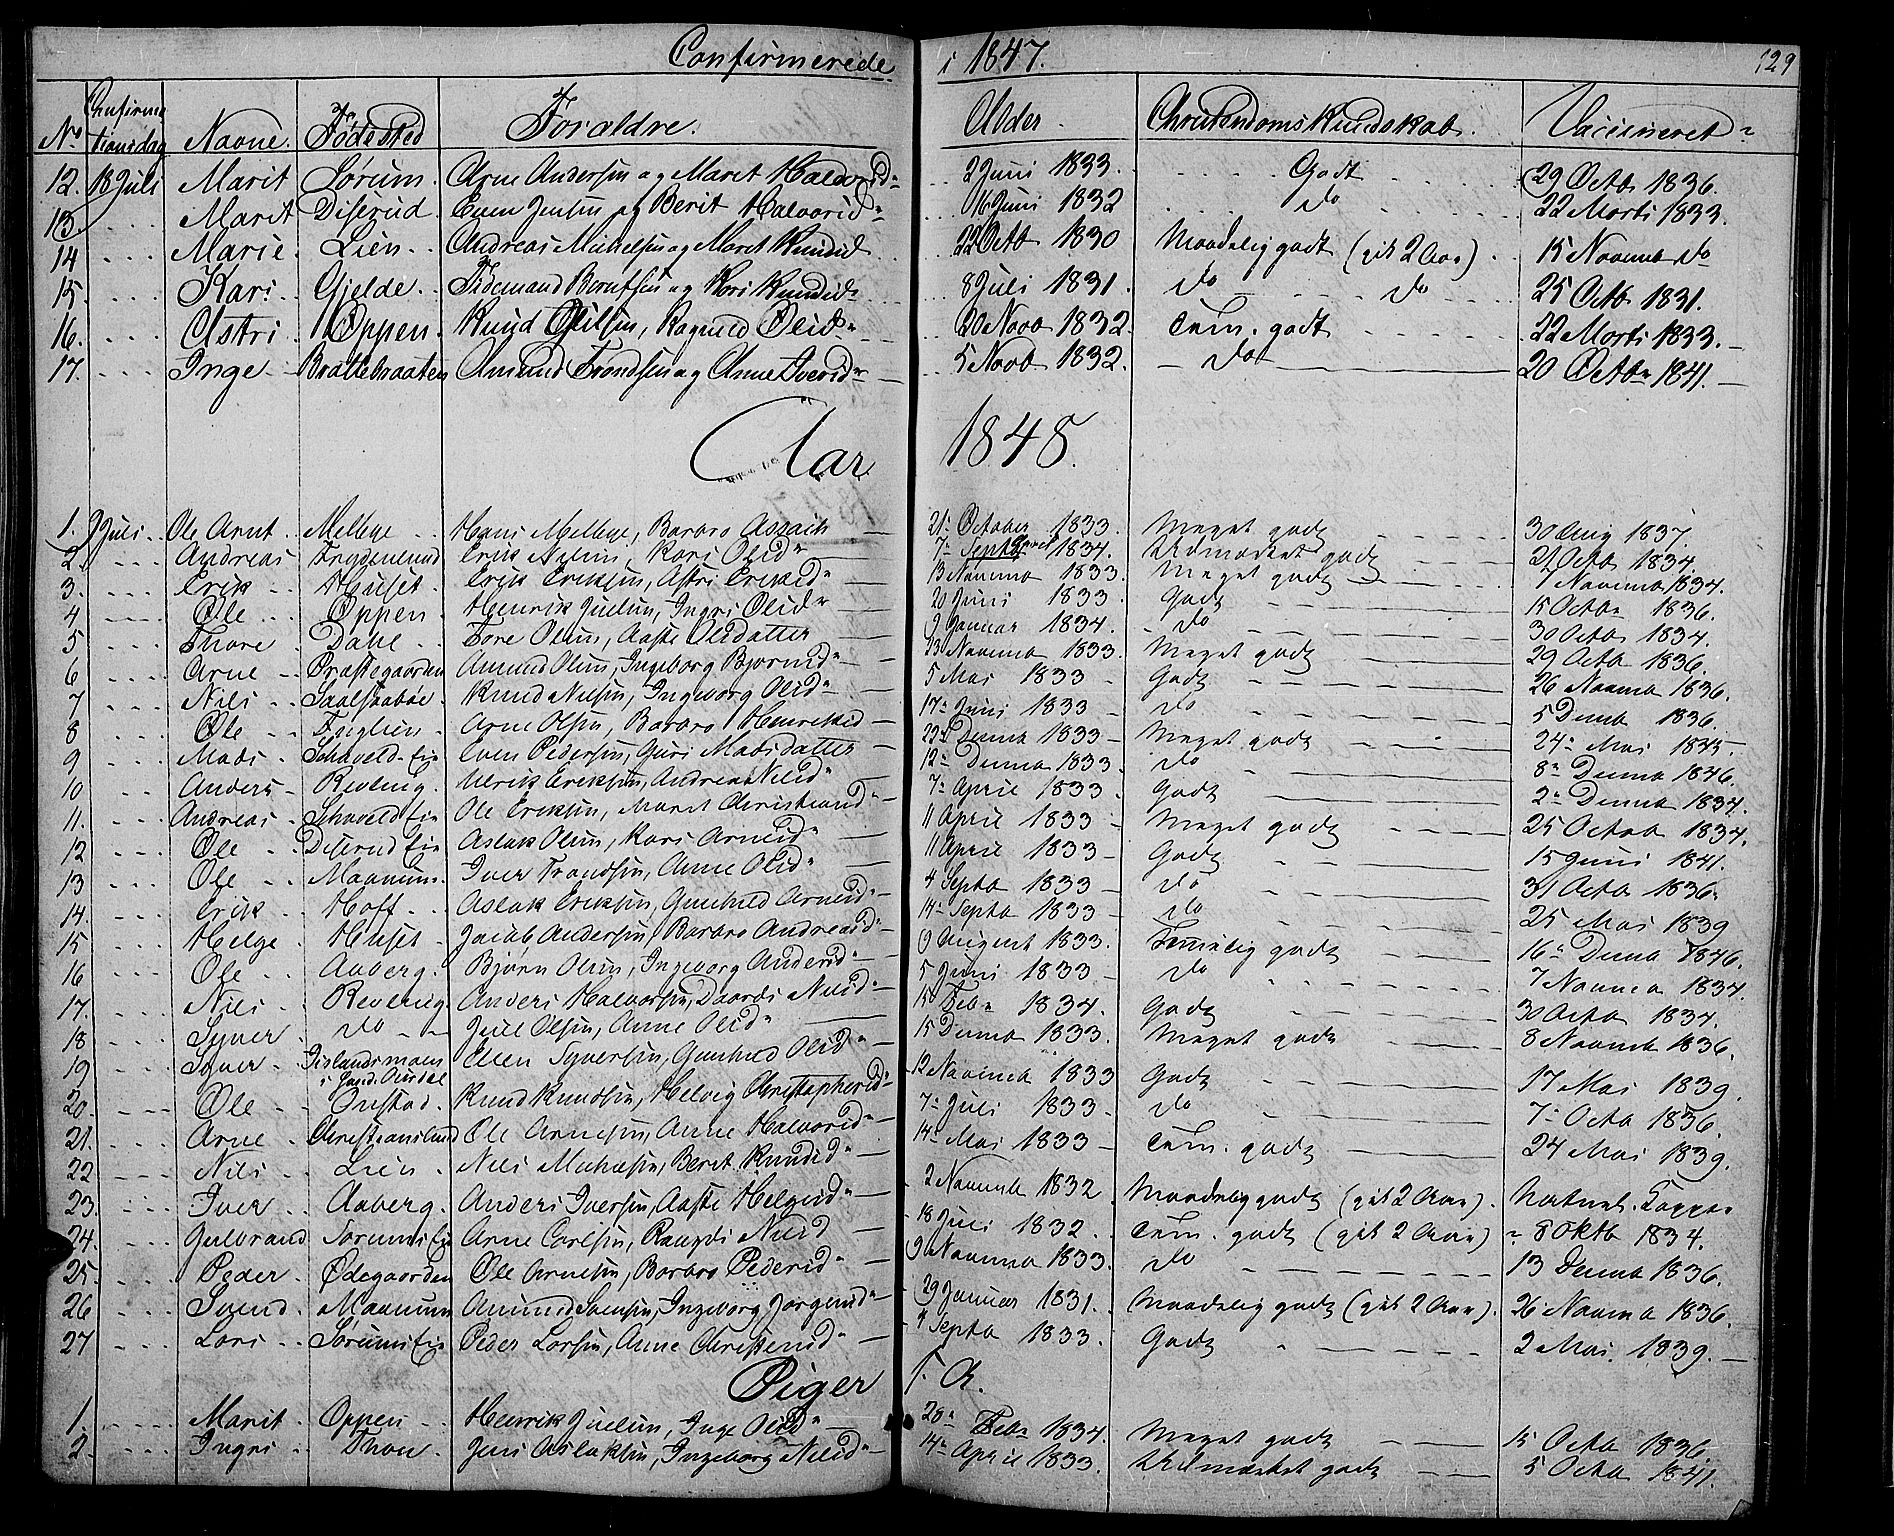 Confirmerede i 1847. 129
No Confirmationsdag Navne. Fødested Foraldre. Alder. Christendoms Kundskab. Vaccineret
12. 18 Juli Marit Sørum. Arne Andersen og Maret Halvorsd 2 Juni 1833. Godt 29 Octb 1836.
13. Marit Diserud. Even Jensen og Berit Halvorsd 16 Juni 1832 do 22 Morts 1833.
14 Marie. Lien. Andreas Michelsen og Maret Knudsd 22 Octb 1830 Maadelig godt (gik 2 Aar). 15 Novemb do
15. Kari Gjelde. Tidemand Berntsen og Kari Knudsd 8 Juli 1831. do do 25 Octb 1831.
16. Astri Oppen. Knud Olsen, Ragnild Olsd 20 Novb 1832. Tem. godt 22 Morts 1833.
17. Inge Brattebraaten Amund Trondsen og Anne Iversd 5 Novb 1832. do 20 Octbr 1841.
Aar 1848.
1. 9 Juli Ole Arnt Mellbye Hans Mellbye, Barbro 21 October 1833. Meget godt 30 Aug 1837.
2. Andreas Frydenlund Erik Nilsen, Kari Olsd 7 Septb 1834. Udmærket godt 21 Octb 1834.
3. Erik Huset. Erik Eriksen, Astri Eriksd 13 Novemb 1833. Meget godt 7 Novemb 1834.
4 Ole Oppen. Henrik Juelsen, Ingri Olsd 20 Juni 1833 Godt 15 Octbr 1836.
5 Thore Dahl Tore Olsen, Aaste Olsdatter 9 Januar 1834. do 30 Octb 1834.
6 Arne Præstegaarden Amund Olsen, Ingeborg Bjørnsd 23 Novemb 1833. Meget godt 29 Octb 1836.
7 Nils Knud Nielsen, Ingeborg Olsd 5 Mai 1833 Godt 26 Novemb 1836.
8 Ole Arne Olsen, Barbro Henriksd 17 Juni 1833 do 5 Decemb 1836.
9 Mads Even Pedersen, Guri Madsdatter 22 Decemb 1833 Meget godt 24 Mai 1845.
10 Anders Revling. Ulrik Eriksen, Andrea Nilsd 12 Decemb 1833. do 8 Decemb 1846.
11. Andreas Ole Eriksen, Maret Christiansd 7 April 1833. Godt 2 Decemb 1834.
12 Ole Diserud Eie Aslak Olsen, Kari Arnesd 11 April 1833 Meget godt 25 Octob 1834.
13 Ole Maanum. Iver Trondsen, Anne Olsd 11 April 1833 Godt 15 Juni 1841.
14. Erik Hoff Aslak Eriksen, Gunhild Arnesd 4 Septb 1833 do 31 Octb 1836.
15 Helge Huset. Jacob Andersen, Barbro Andreasd 14 Septb 1833 do 25 Mai 1839
16 Ole Aaberg. Bjørn Olsen, Ingeborg Andersd 9 August 1833. Temmelig godt 16 Decemb 1846.
17. Nils Revling Anders Halvorsen, Nilsd 5 Juni 1833 do 7 Novemb 1834.
18 Syver do Juul Olsen, Anne Olsd 15 Febr 1834. Godt 30 Octb 1834.
19 Syver i Søndr Aurdal Ellen Syversen, Gunhild Olsd 15 Decemb 1833. Meget godt 8 Novemb 1836.
20. Ole Onstad. Knud Knudsen, Helvig Christophersd 12 Novemb 1833 Godt 17 Mai 1839.
21. Arne Christianslund Ole Arnesen, Anne Halvorsd 7 Juli 1833 do 7 Octb 1836.
22 Nils Lien. Nils Michelsen, Beret Knudsd 14 Mai 1833 Tem. godt 24 Mai 1839.
23. Iver Aaberg. Anders Iversen, Aaste Helgesd 2 Novemb 1832 Maadelig godt (gik 2 Aar). Naturl. Kopper
24. Gulbrand Sørums Eie Arne Carlsen, Rangdi Nilsd 18 Juli 1832. Tem. godt (gik 2 Aar) 8 Oktb 1834.
25. Peder Ødegaarden Ole Arnesen, Barbro Pedersd 9 Novemb 1833. do 13 Decemb 1836.
26 Svend Maanum Amund Svensen, Ingeborg Jørgensd 29 Januar 1831. Maadelig godt (gik 2 Aar). 26 Novemb 1836.
27 Lars Sørums Eie Peder Larsen, Anne Christensd 4 Septb 1833. Godt 2 Mai. 1839.
Piger
1. Marit Oppen Henrik Juelsen, Inge Olsd 28 Febr 1834. Meget godt 15 Octb 1836.
2. Ingri Thon. Jens Aslaksen, Ingeborg Nilsd 14 April 1833. Udmærket godt 5 Octb 1841.